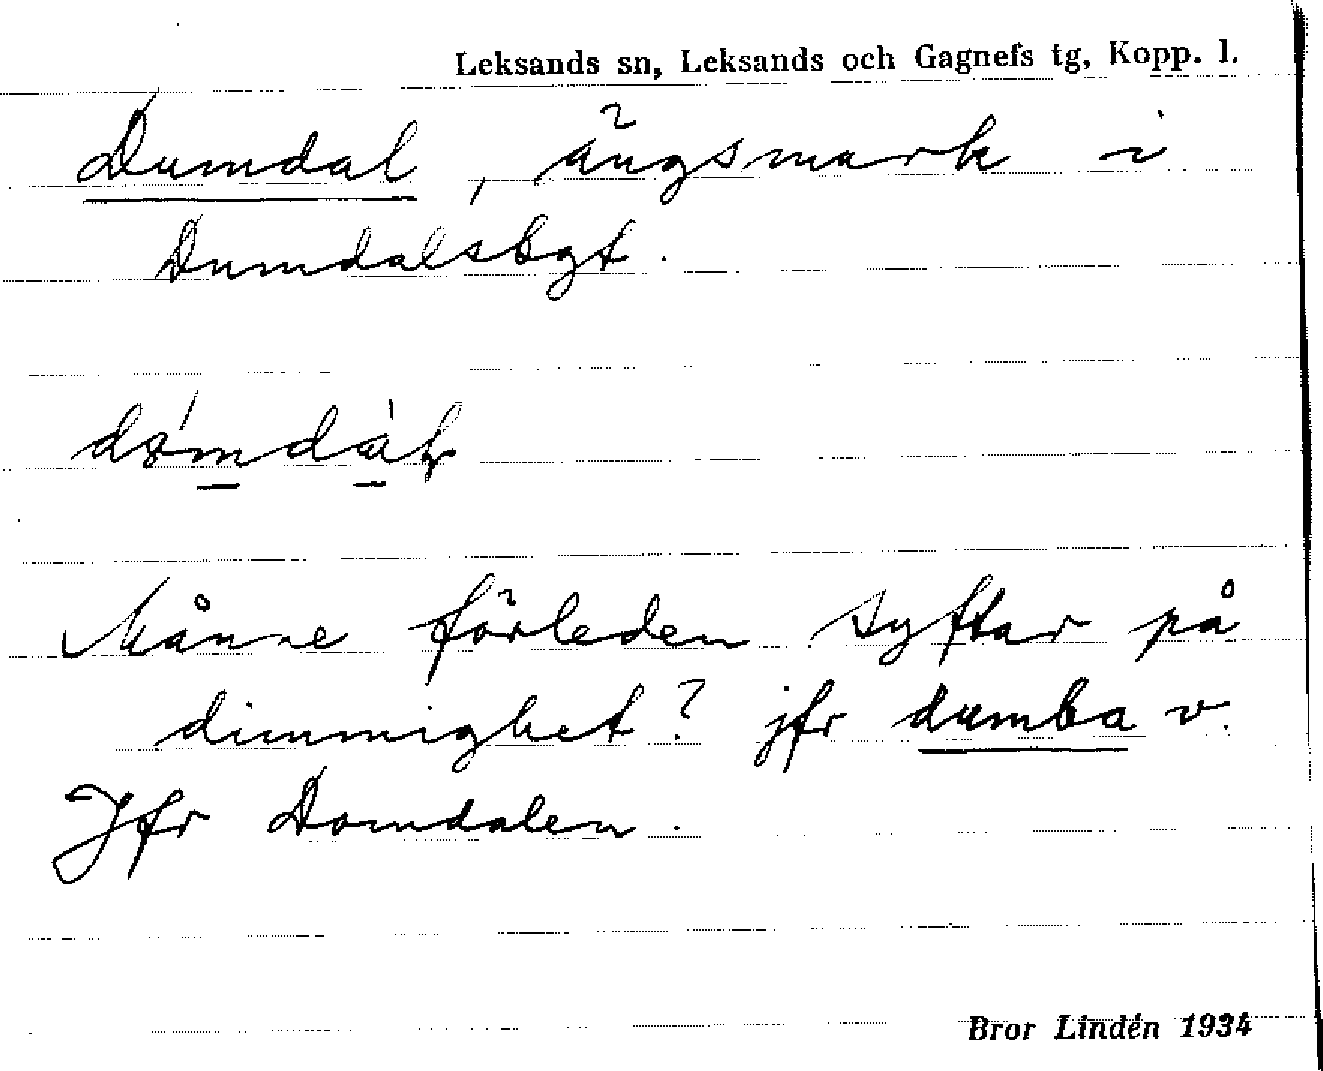 Leksands sn, Leksands och Gagnefs tg, Kopp. l.
Dumdal, ängsmark i
Dumdalsbgt.
Månne förleden syftar på
dimmighet? jfr dumba v.
Jfr Domdalen.
Bror Lindén 1934